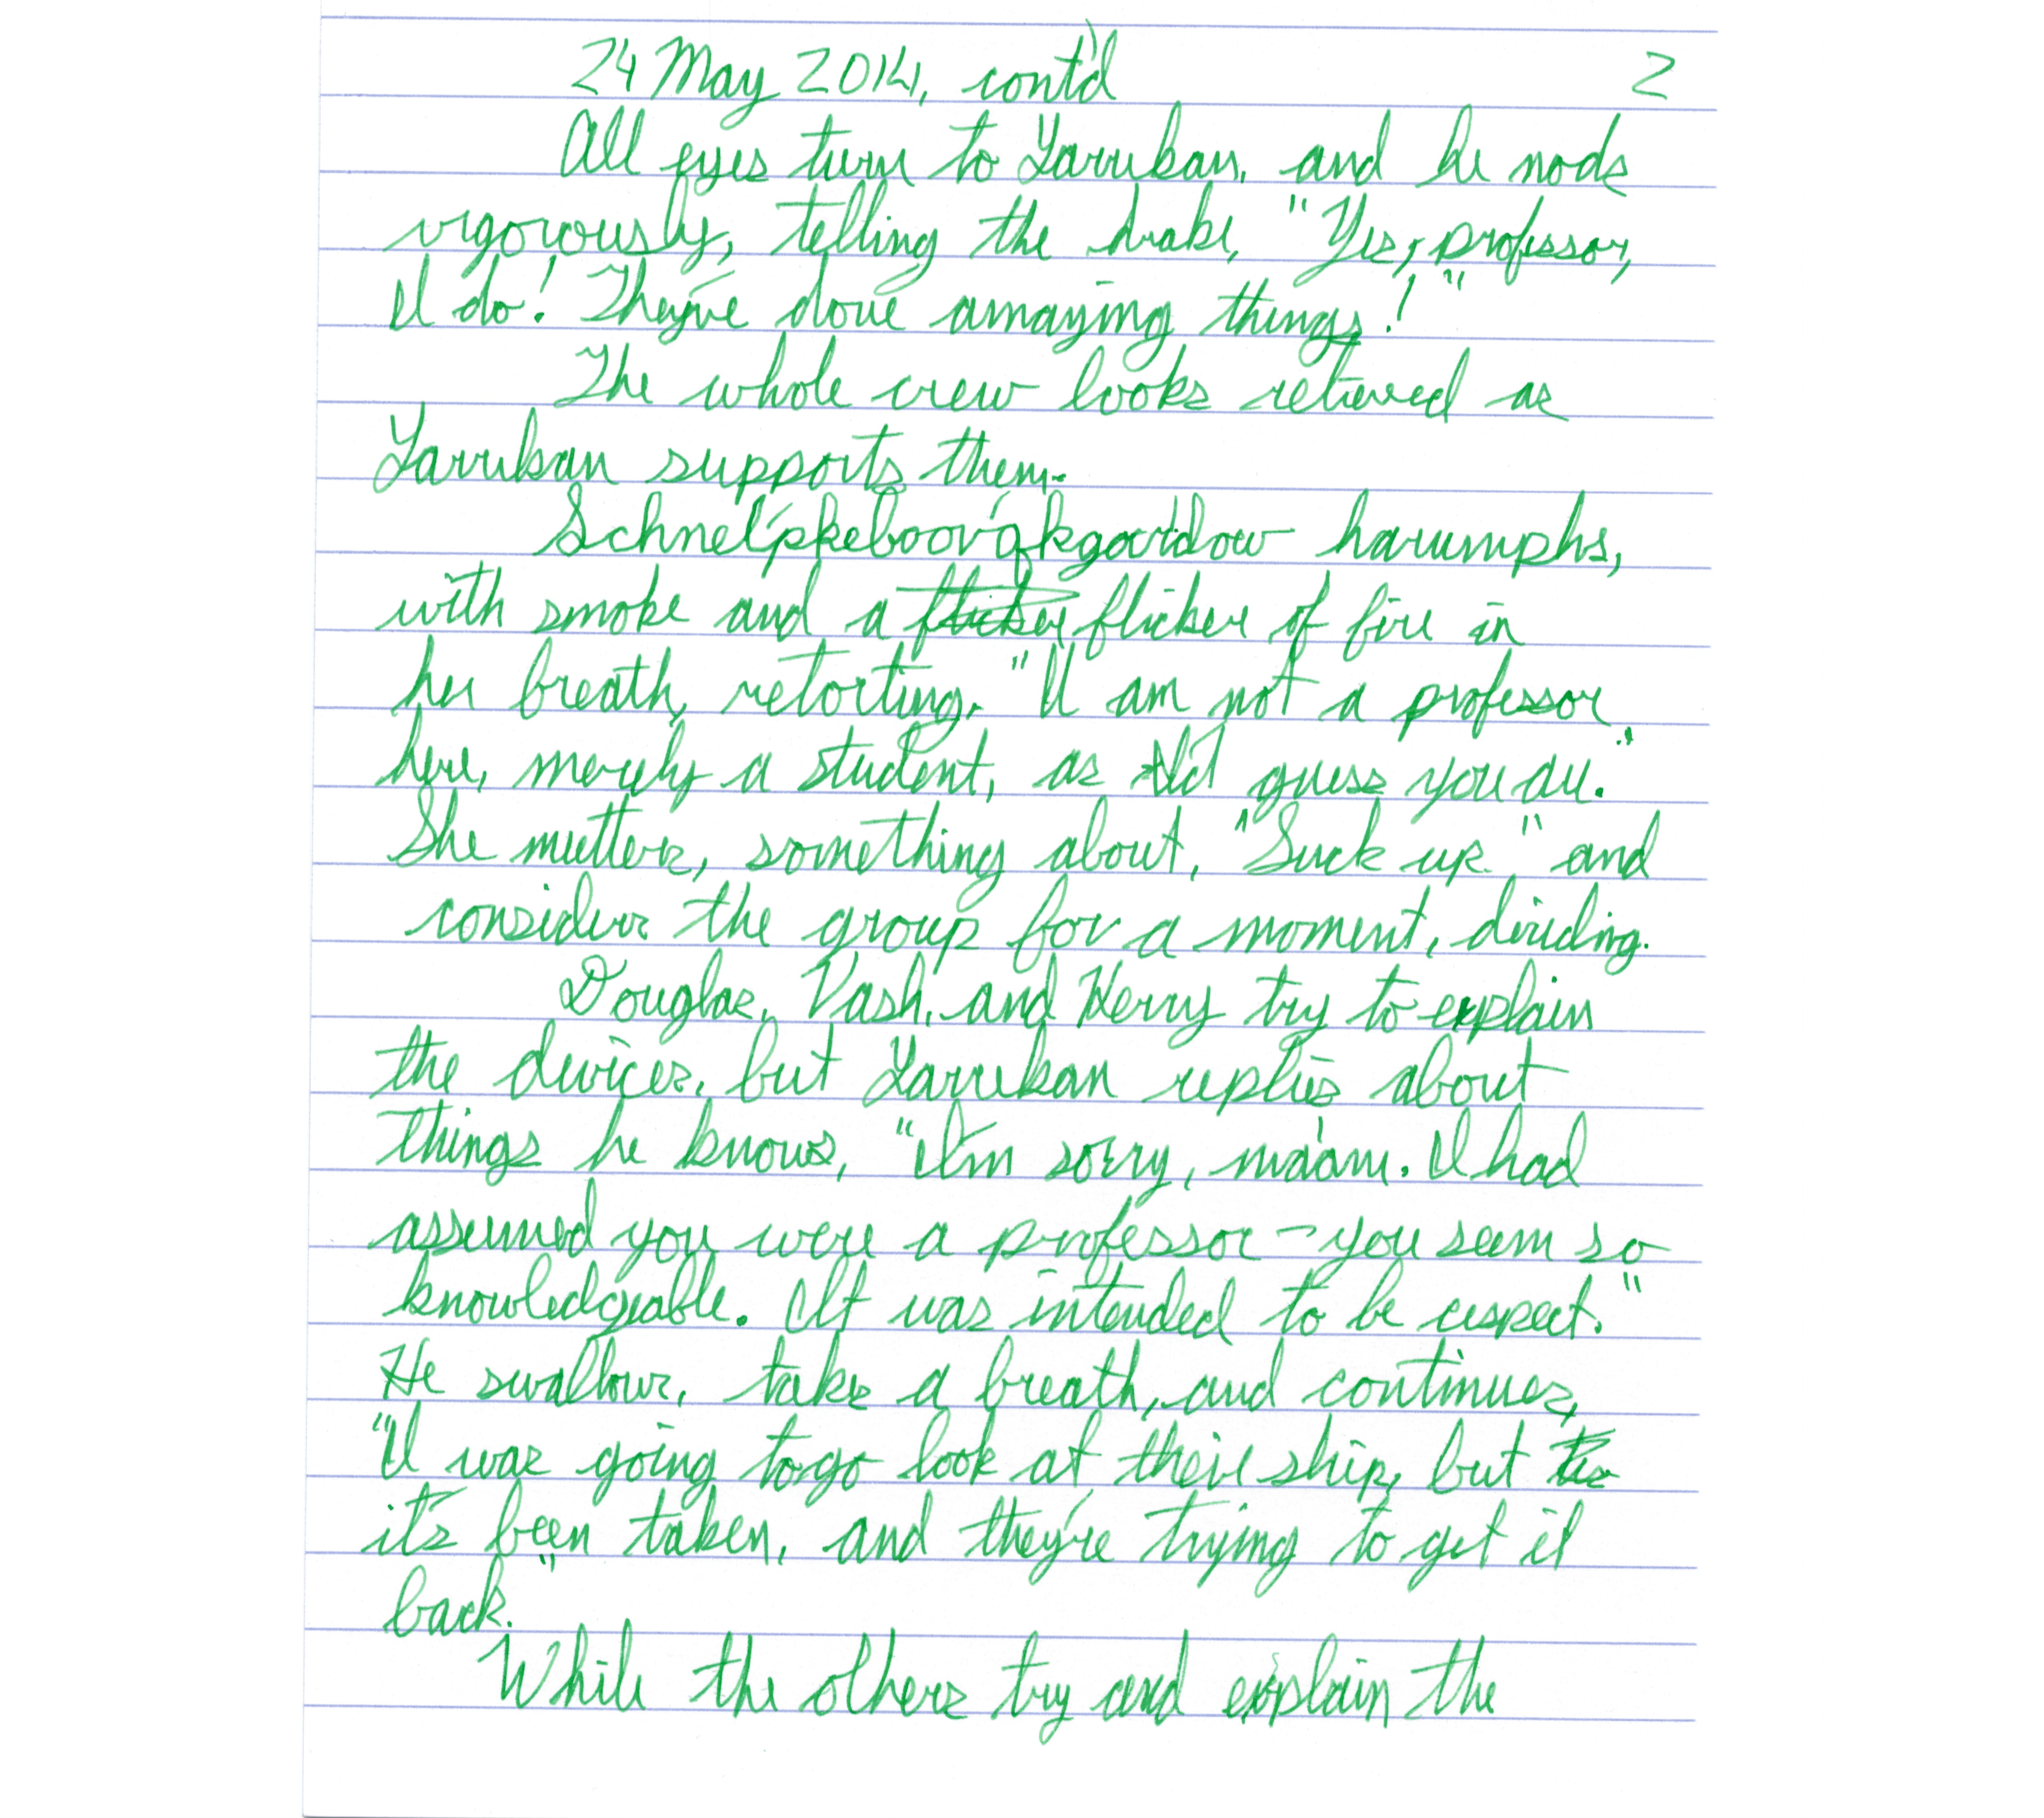 24 May 2014, cont'd 2
All eyes turn to Yarrekan, and he nods
vigorously, telling the drake, "Yes, professor,
I do! They've done amazing things!"
The whole crew looks relieved as
Yarrekan supports them.
with smoke and a flicker flicker of fire in
her breath, retorting, "I am not a professor
here, merely a student, as I'd guess you are."
She mutters, something about, "Suck up" and
considers the group for a moment, deciding.
Douglas, Vash, and Kerry try to explain
the devices, but Yarrekan replies about
things he knows, "I'm sorry, ma'am. I had
assumed you were a professor - you seem so
knowledgeable. It was intended to be respect."
He swallows, takes a breath, and continues,
"I was going to go look at their ship, but
it's been taken, and they're trying to get it
back."
While the others try and explain the